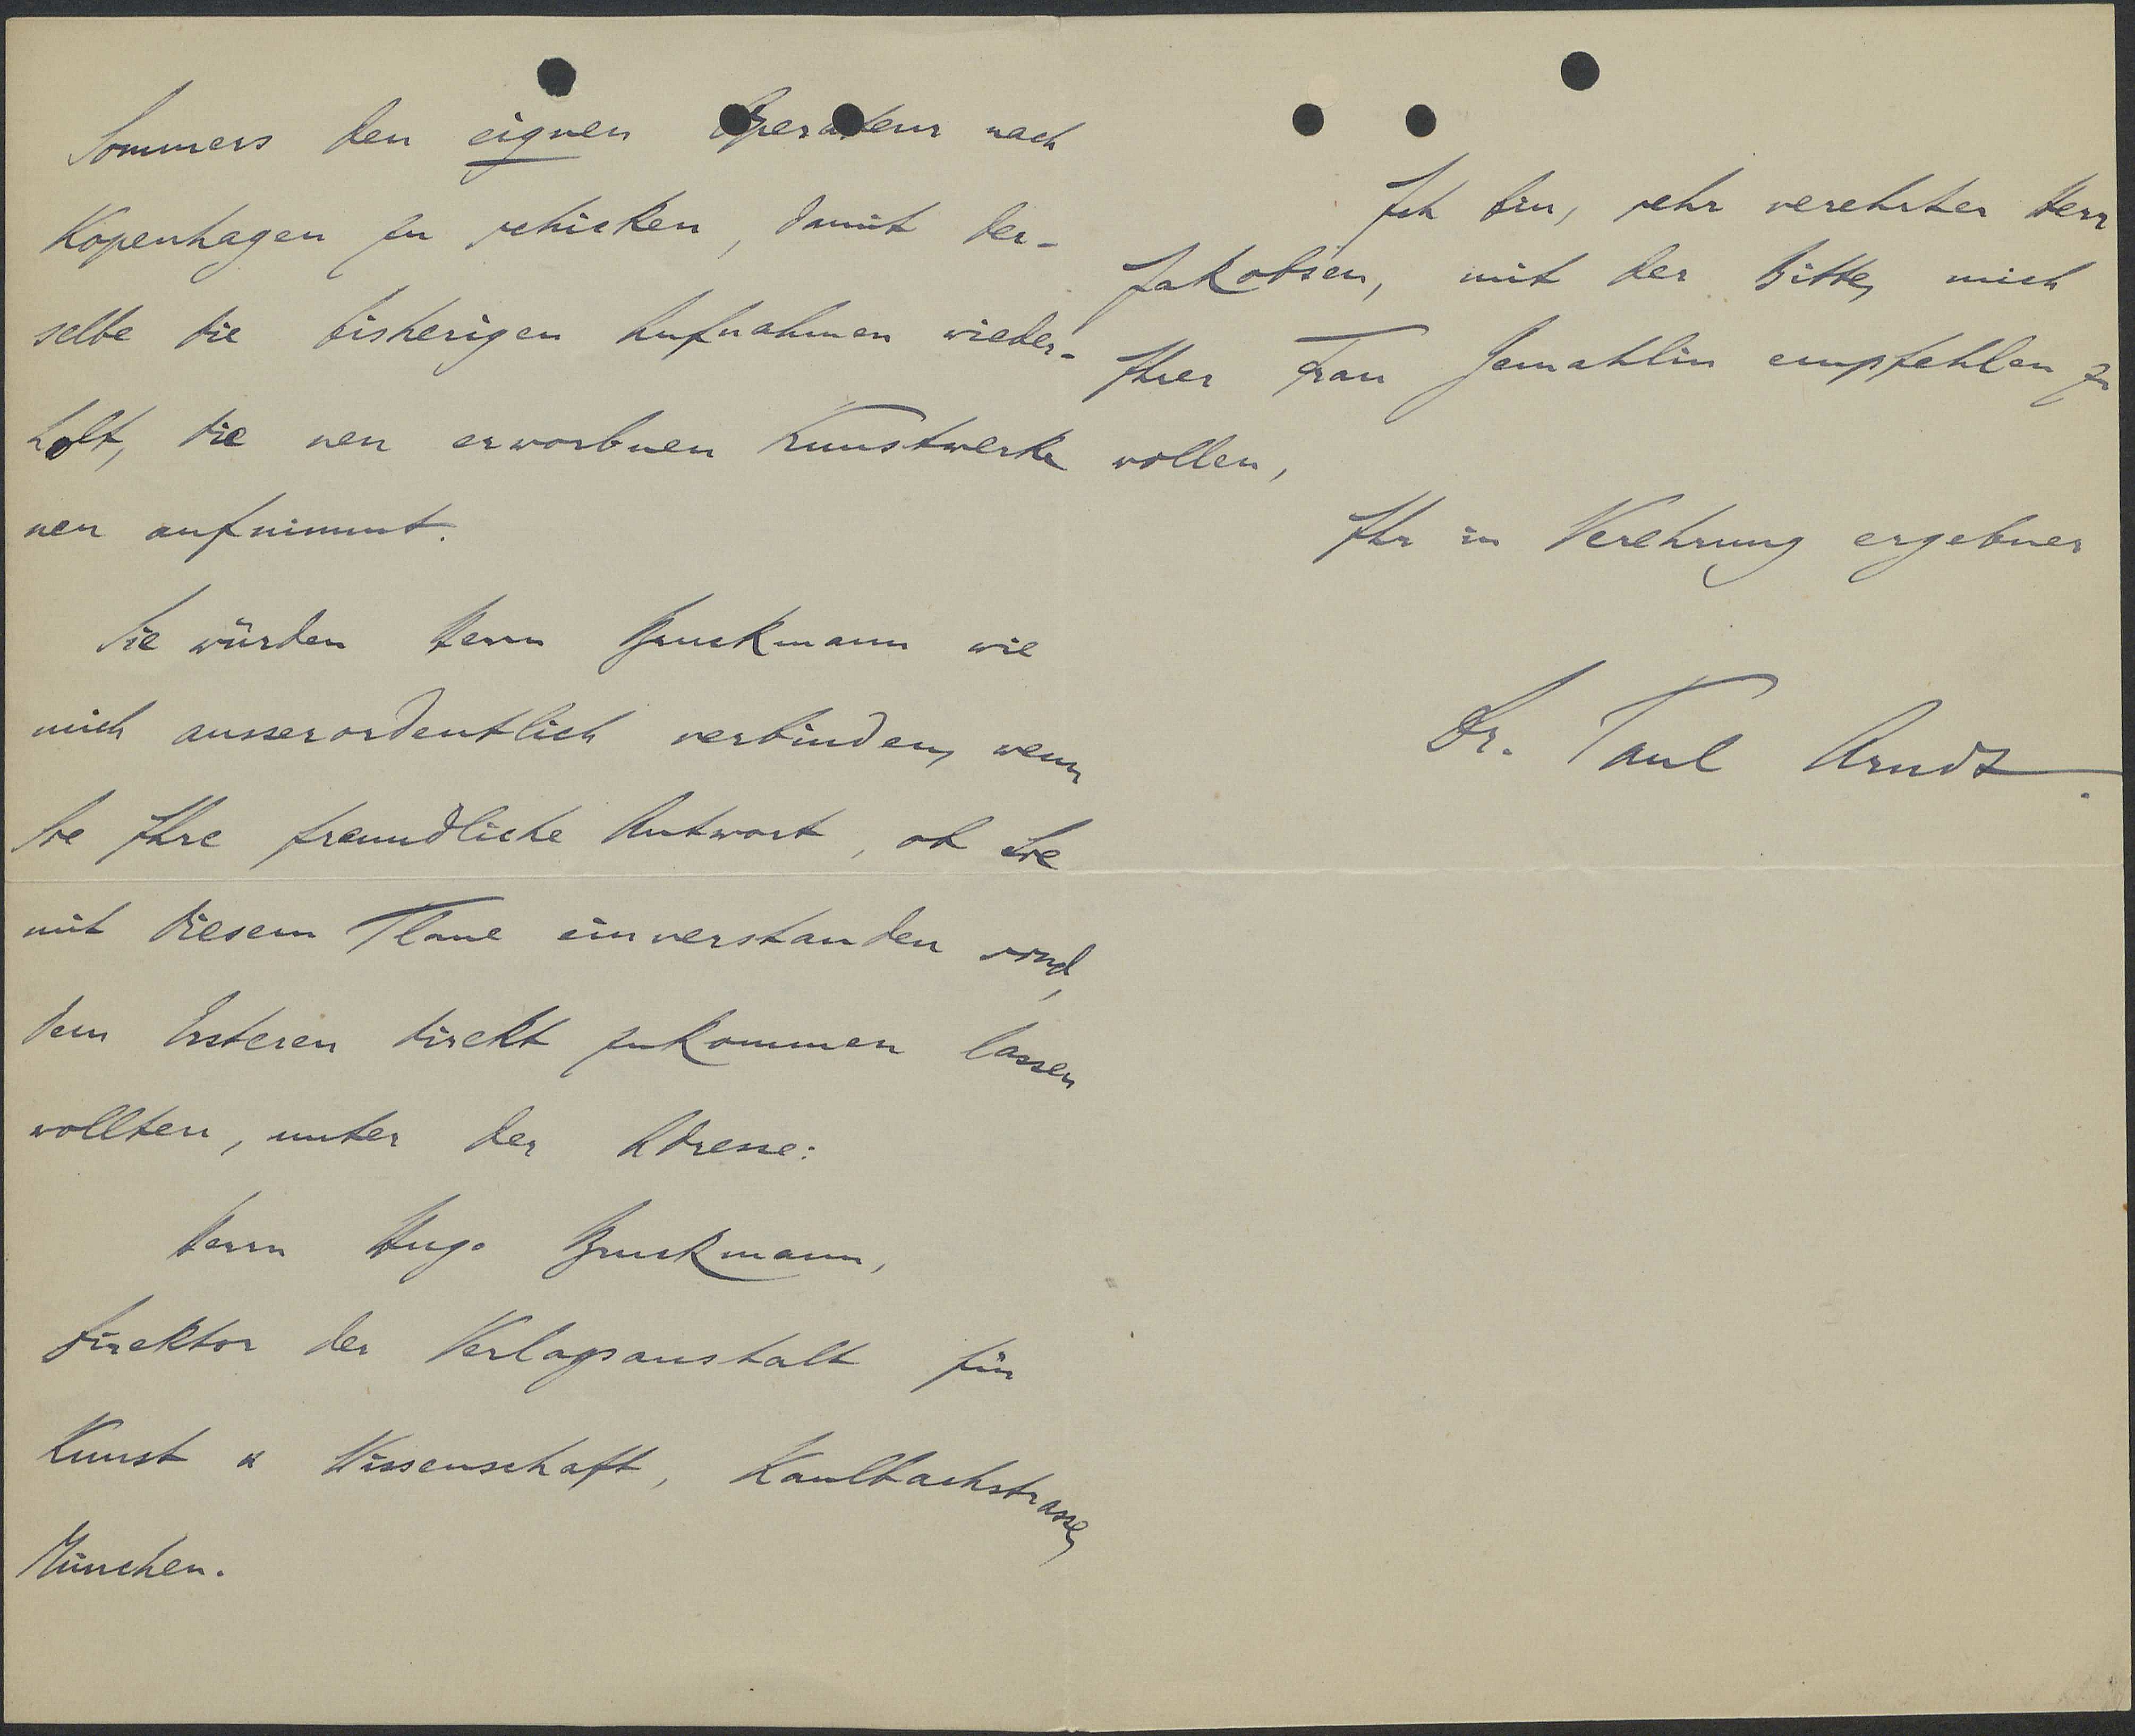 Sommers den eignen Operateur nach
Kopenhagen zu schicken, damit der-
selbe die bisherigen Aufnahmen wieder-
holt, die neu erworbnen Kunstwerke
neu aufnimmt.
Sie würden Herrn Bruckmann wie
mich ausserordentlich verbinden, wenn
Sie Ihre freundliche Antwort, ob Sie
mit diesem Plane einverstanden sind,
dem Ersteren direkt zukommen lassen
wollten, unter der Adresse:
Herrn Hugo Bruckmann,
Direktor der Verlagsanstalt für
Kunst u Wissenschaft, Kaulbachstrasse,
München.
Ich bin, sehr verehrter Herr
Jakobsen, mit der Bitte, mich
Ihrer Frau Gemahlin empfehlen zu
wollen,
Ihr in Verehrung ergebner
Dr. Paul Arndt.